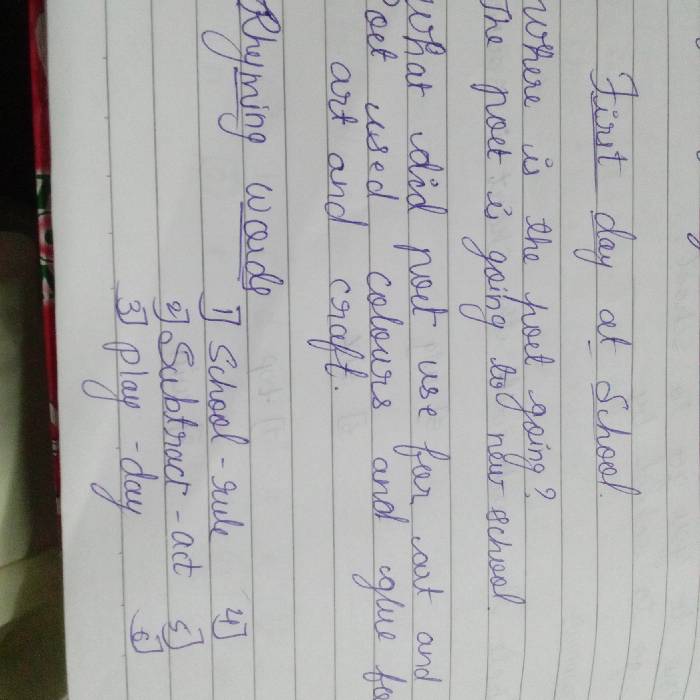 First day at School.
Where is the poet going?
The poet is going to new school
What did poet use for art and
Poet used colours and glue for
art and craft.
Rhyming words
1] School - rule 4]
2] Subtract - act 5]
3] play - day 6]